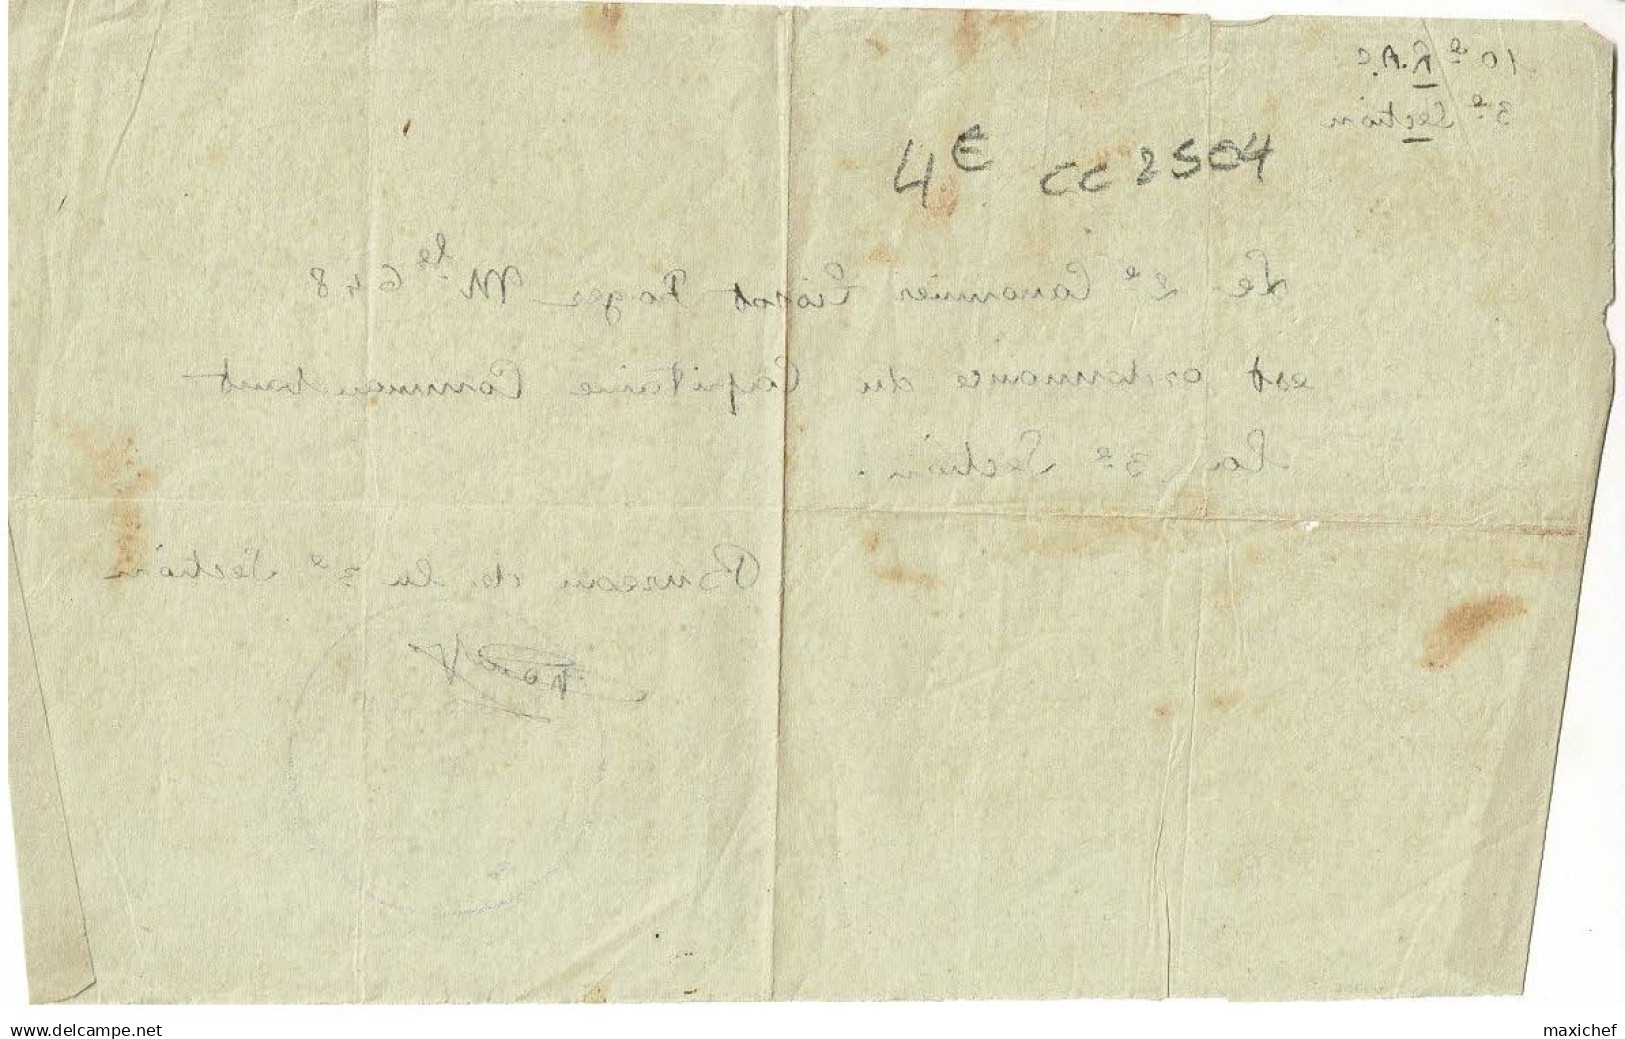 10e R.A.C
3e Section
4E CC 2504
Le 2e Canonnier Roger Mle 648
est ordonnance du Capitaine Commandant
la 3e Section.
Bureau de la 3e Section
www.delcampe.net
maxichef